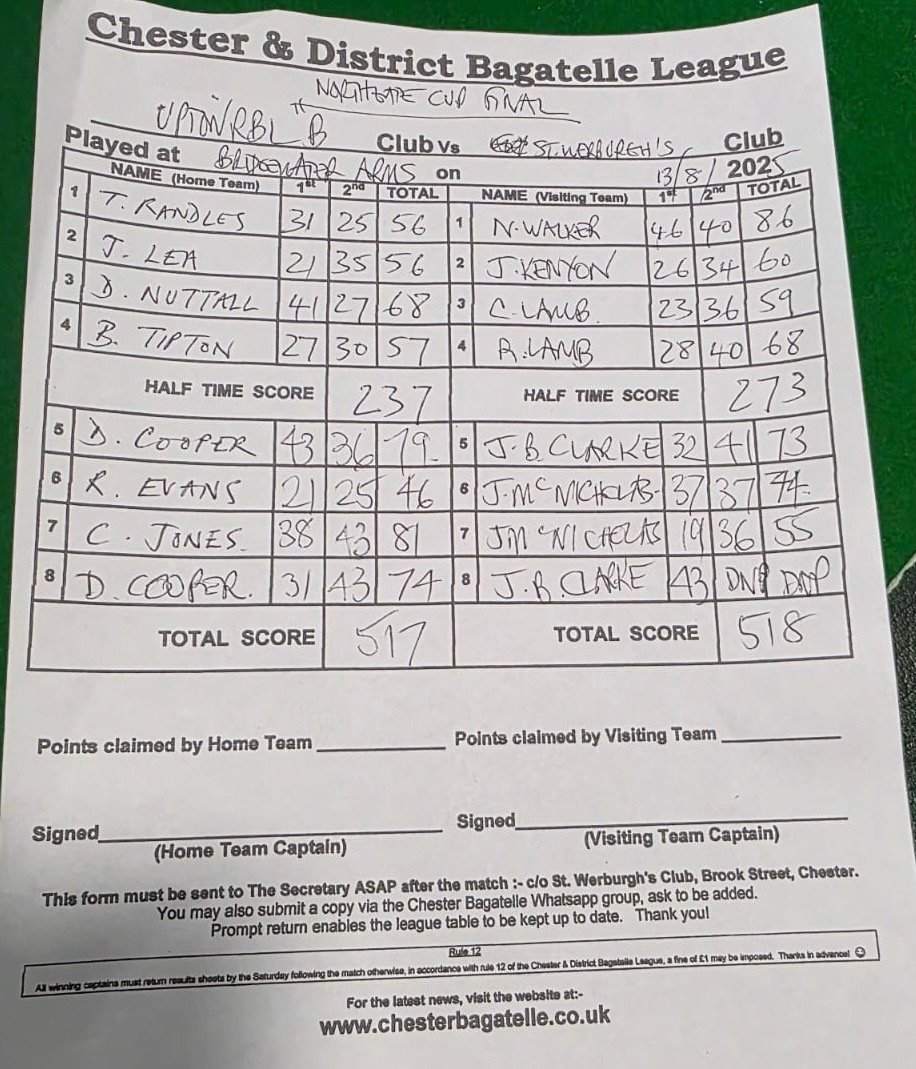 Chester & District Bagatelle League
NORTHGATE CUP FINAL
UPTON RBL B Club vs ST. WERBURGH'S Club
Played at BRIDGEWATER ARMS on 13/8/2025
NAME (Home Team) 1st 2nd TOTAL NAME (Visiting Team) 1st 2nd TOTAL
1 T. RANDLES 31 25 56 1 N. WALKER 46 40 86
2 J. LEA 21 35 56 2 J. KENYON 26 34 60
3 D. NUTTALL 41 27 68 3 C. LAMB 23 36 59
4 B. TIPTON 27 30 57 4 R. LAMB 28 40 68
HALF TIME SCORE 237 HALF TIME SCORE 273
5 D. COOPER 43 36 79 5 J. B. CLARKE 32 41 73
6 R. EVANS 21 25 46 6 J. McNICHOLAS 37 37 74
7 C. JONES 38 43 81 7 J McNICHOLAS 19 36 55
8 D. COOPER. 31 43 74 8 J. B. CLARKE 43 DNP DNP
TOTAL SCORE 517 TOTAL SCORE 518
Points claimed by Home Team Points claimed by Visiting Team
Signed Signed
(Home Team Captain) (Visiting Team Captain)
This form must be sent to The Secretary ASAP after the match :- c/o St. Werburgh's Club, Brook Street, Chester.
You may also submit a copy via the Chester Bagatelle Whatsapp group, ask to be added.
Prompt return enables the league table to be kept up to date. Thank you!
Rule 12
All winning captains must return results sheets by the Saturday following the match otherwise, in accordance with rule 12 of the Chester & District Bagatelle League, a fine of £1 may be imposed. Thanks in advance! ☺
For the latest news, visit the website at:-
www.chesterbagatelle.co.uk